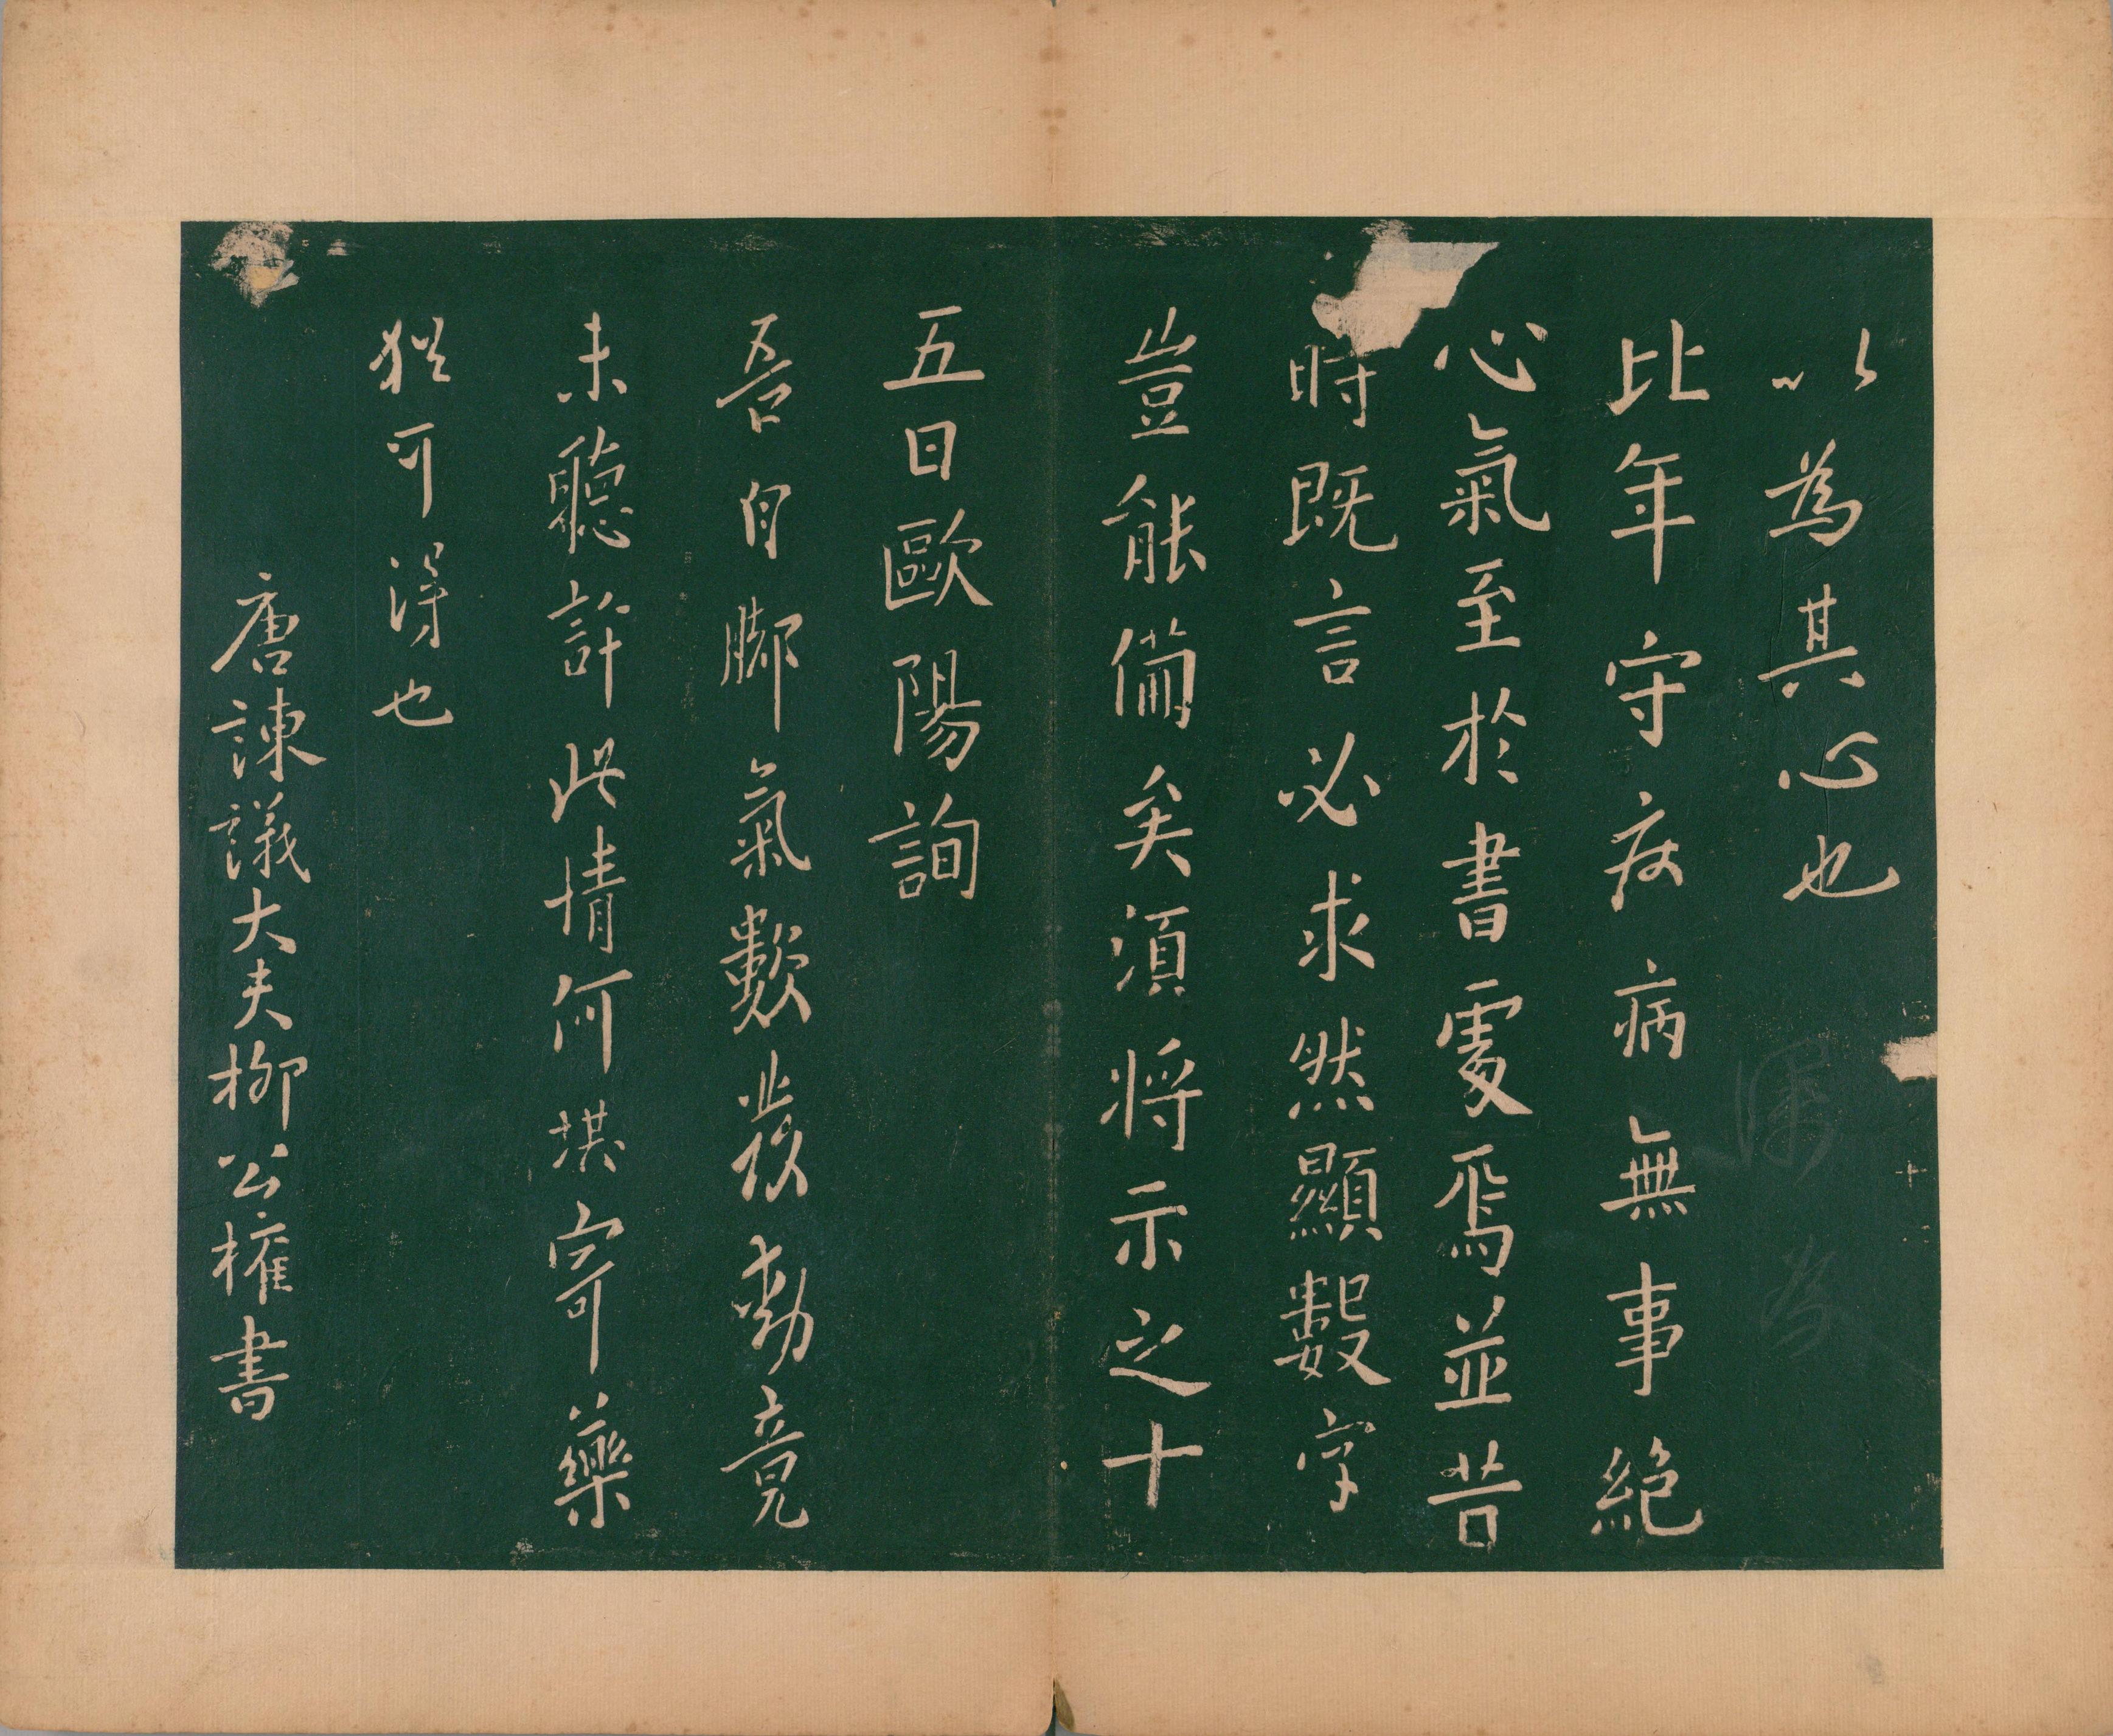 以為其心也
比年守疾病無事絕
心氣至於書處焉並昔
時既言必求然顯數字
豈能備矣須將示之十
五日歐陽詢
吾自腳氣數發動竟
未聽許此情何堪寄藥
猶可得也
唐諫議大夫柳公權書